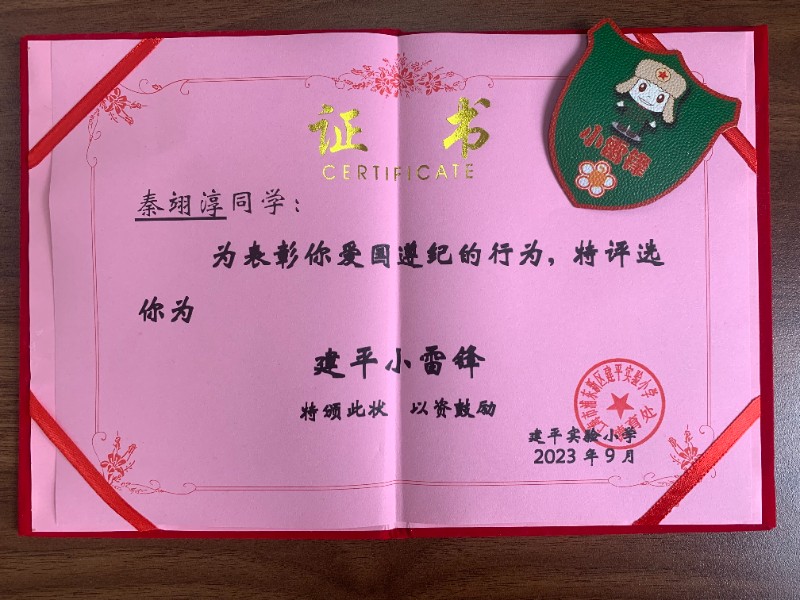 证 书
CERTIFICATE
小雷锋
秦翊淳同学：
为表彰你爱国遵纪的行为，特评选
你为
建平小雷锋
特颁此状 以资鼓励
建平实验小学
2023 年 9 月
市浦东新区建平实验小学
育处